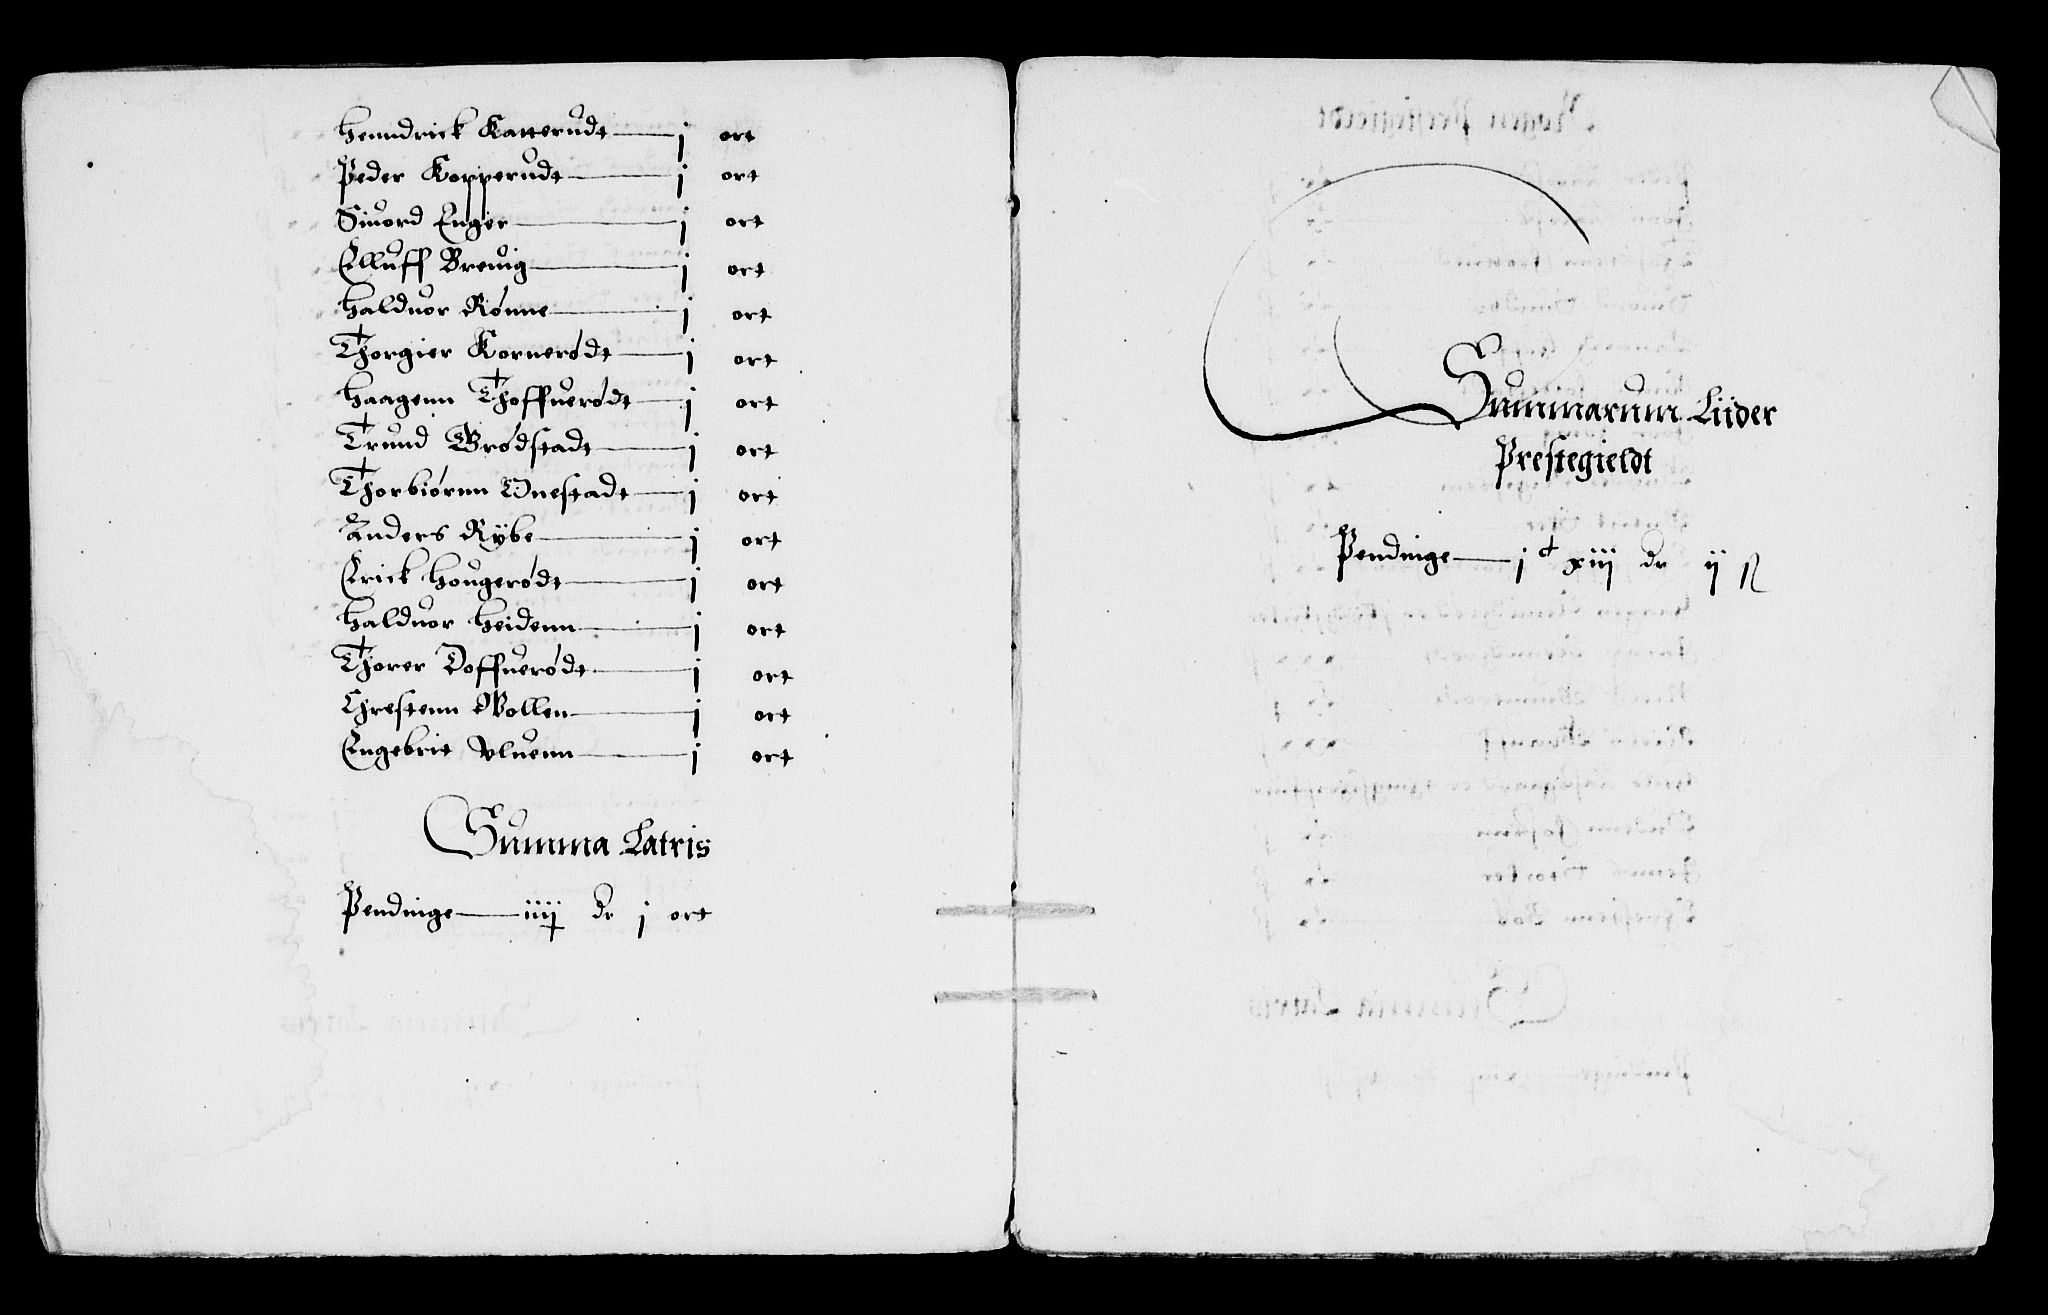 Henndrick Katterudt — j ort
Peder Kopperudt — j ort
Siuord Enger — j ort
Elluff Breuig — j ort
Halduor Rønne — j ort
Thorgier Kornerødt — j ort
Haagenn Thoffuerødt — j ort
Trund Brødstadt — j ort
Thorbiørnn Onestadt — j ort
Anders Rÿbe — j ort
Erick Hougerødt — j ort
Halduor Heidenn — j ort
Thorer Doffuerødt — j ort
Chrestenn Wollen — j ort
Engebrit Vluenn — j ort
Summa Latris
Pendinge — iiij dr j ort
Summarum Liider
Prestegieldt
Pendinge — j c xiij dr ij ß